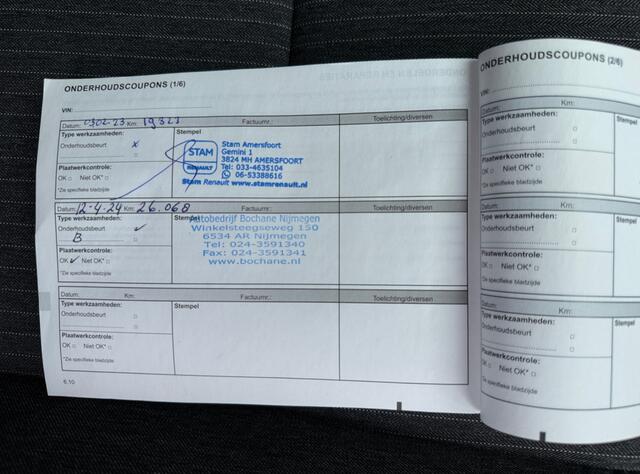 ONDERHOUDSCOUPONS (1/6)
VIN:
Datum: Km: 19321 Factuurnr.: Toelichting/diversen
Type werkzaamheden: Stempel
Onderhoudsbeurt x
Plaatwerkcontrole:
OK □ Niet OK* □
*Zie specifieke bladzijde
STAM
RENAULT
Stam Amersfoort
Gemini 1
3824 MH AMERSFOORT
Tel: 033-4635104
06-53388616
Stam Renault www.stamrenault.nl
Datum: 12-4-24 Km: 26.068 Factuurnr.: Toelichting/diversen
Type werkzaamheden: Stempel
Onderhoudsbeurt ✓
B
Plaatwerkcontrole:
OK ✓ Niet OK* □
*Zie specifieke bladzijde
Autobedrijf Bochane Nijmegen
Winkelsteegseweg 150
6534 AR Nijmegen
Tel: 024-3591340
Fax: 024-3591341
www.bochane.nl
Datum: Km: Factuurnr.: Toelichting/diversen
Type werkzaamheden: Stempel
Onderhoudsbeurt □
Plaatwerkcontrole:
OK □ Niet OK* □
*Zie specifieke bladzijde
6.10
ONDERHOUDSCOUPONS (2/6)
VIN:
Datum: Km:
Type werkzaamheden: Stempel
Onderhoudsbeurt □
Plaatwerkcontrole:
OK □ Niet OK* □
*Zie specifieke bladzijde
Datum: Km:
Type werkzaamheden: Stempel
Onderhoudsbeurt □
Plaatwerkcontrole:
OK □ Niet OK* □
*Zie specifieke bladzijde
Datum: Km:
Type werkzaamheden: Stempel
Onderhoudsbeurt □
Plaatwerkcontrole:
OK □ Niet OK* □
*Zie specifieke bladzijde